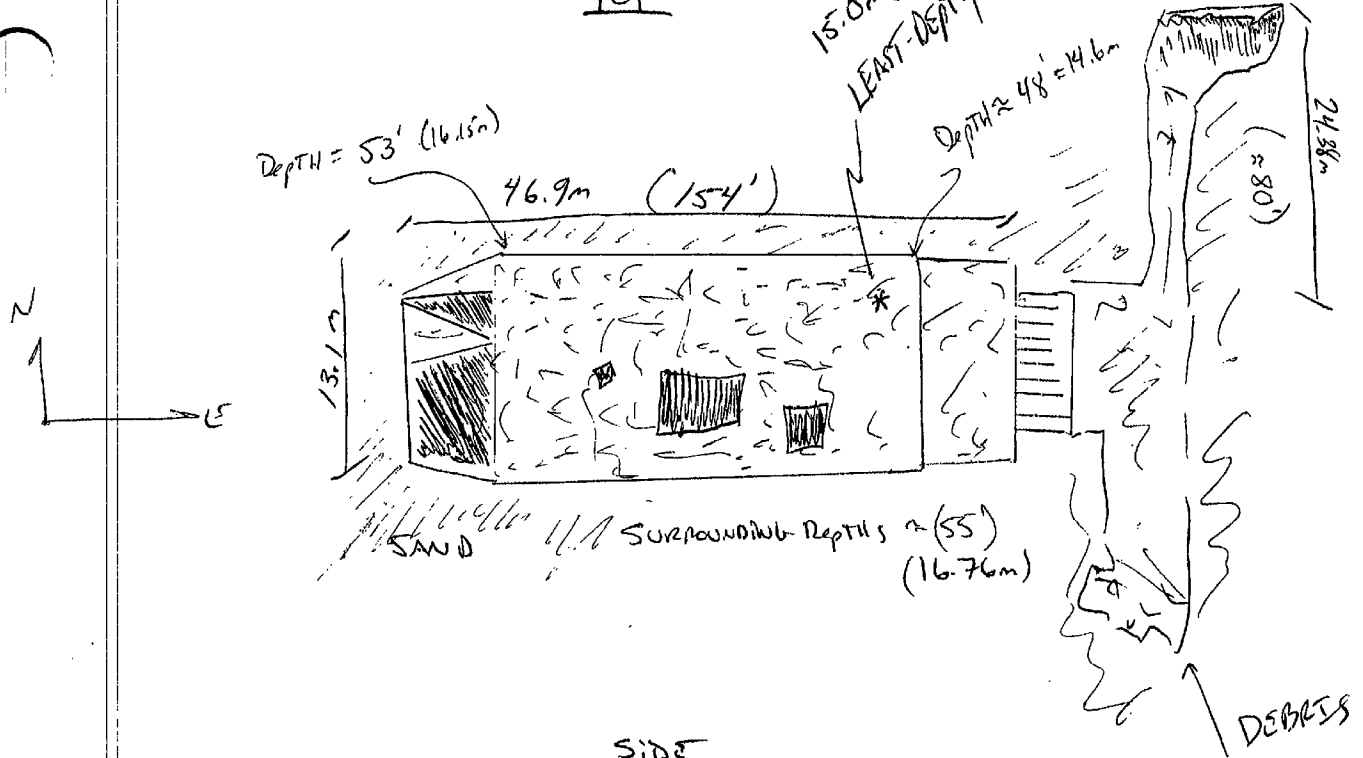 15.0m
LEAST-DEPTH
DEPTH ≈ 48' = 14.6m
DEPTH = 53' (16.15m)
46.9m (154')
24.38m
(≈ 80')
13.1m
N
E
SAND
SURROUNDING DEPTHS ≈ (55')
(16.76m)
DEBRIS
SIDE